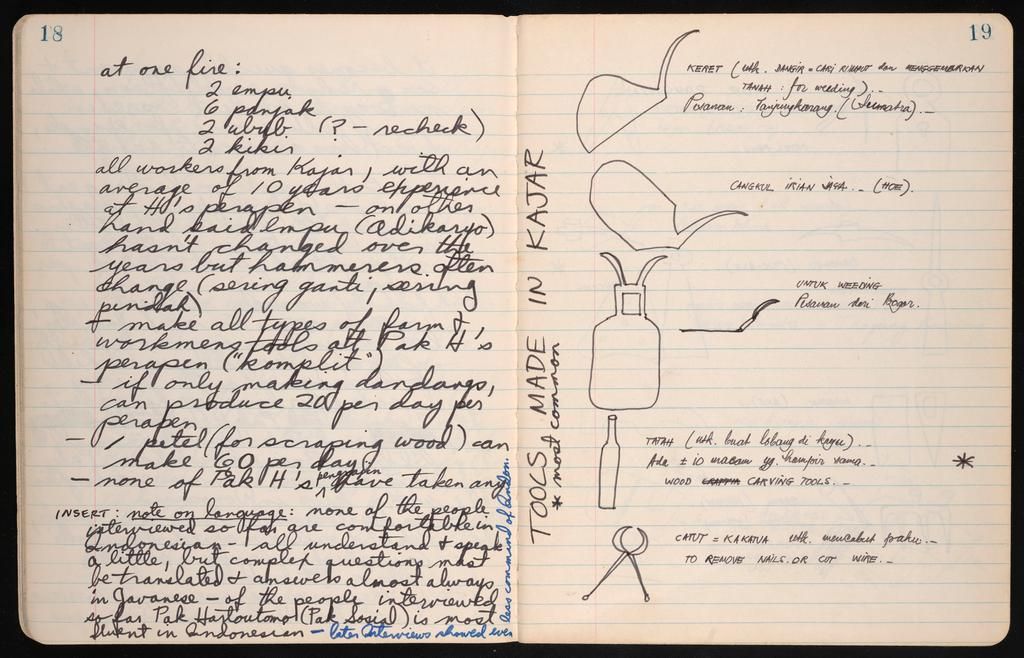 18
at one fire:
2 empu
6 panjak
2 ubub (? - recheck)
2 kikir
all workers from Kajar, with an
average of 10 years experience
at H's perapen — on other
hand said empu (Adikaryo)
hasn't changed over the
years but hammerers often
change (sering ganti, sering
pindah)
+ make all types of farm &
workmens tools at Pak H's
perapen ("komplit")
- if only making dandangs,
can produce 20 per day per
perapen
- 1 petel (for scraping wood) can
make 60 per day
- none of Pak H's pengrajin have taken any
INSERT: note on language: none of the people
interviewed so far are comfortable in
Indonesian - all understand & speak
a little, but complex questions must
be translated & answers almost always
in Javanese - of the people interviewed
so far Pak Hartoutomo (Pak Sosial) is most
fluent in Indonesian - later interviews showed even
less command of
19
TOOLS MADE IN KAJAR
* most common
KERET (utk. DANGIR = CARI RUMPUT dan MENGGEMBURKAN
TANAH : for weeding).-
Pesanan : Tanjungkarang. (Sumatra).-
CANGKUL IRIAN JAYA.- (HOE).
UNTUK WEEDING
Pesanan dari Bogor.
TATAH (utk. buat lobang di kayu).-
Ada ± 10 macam yg. hampir sama.- *
WOOD CARVING TOOLS.-
CATUT = KAKATUA utk. mencabut paku.-
TO REMOVE NAILS OR CUT WIRE.-